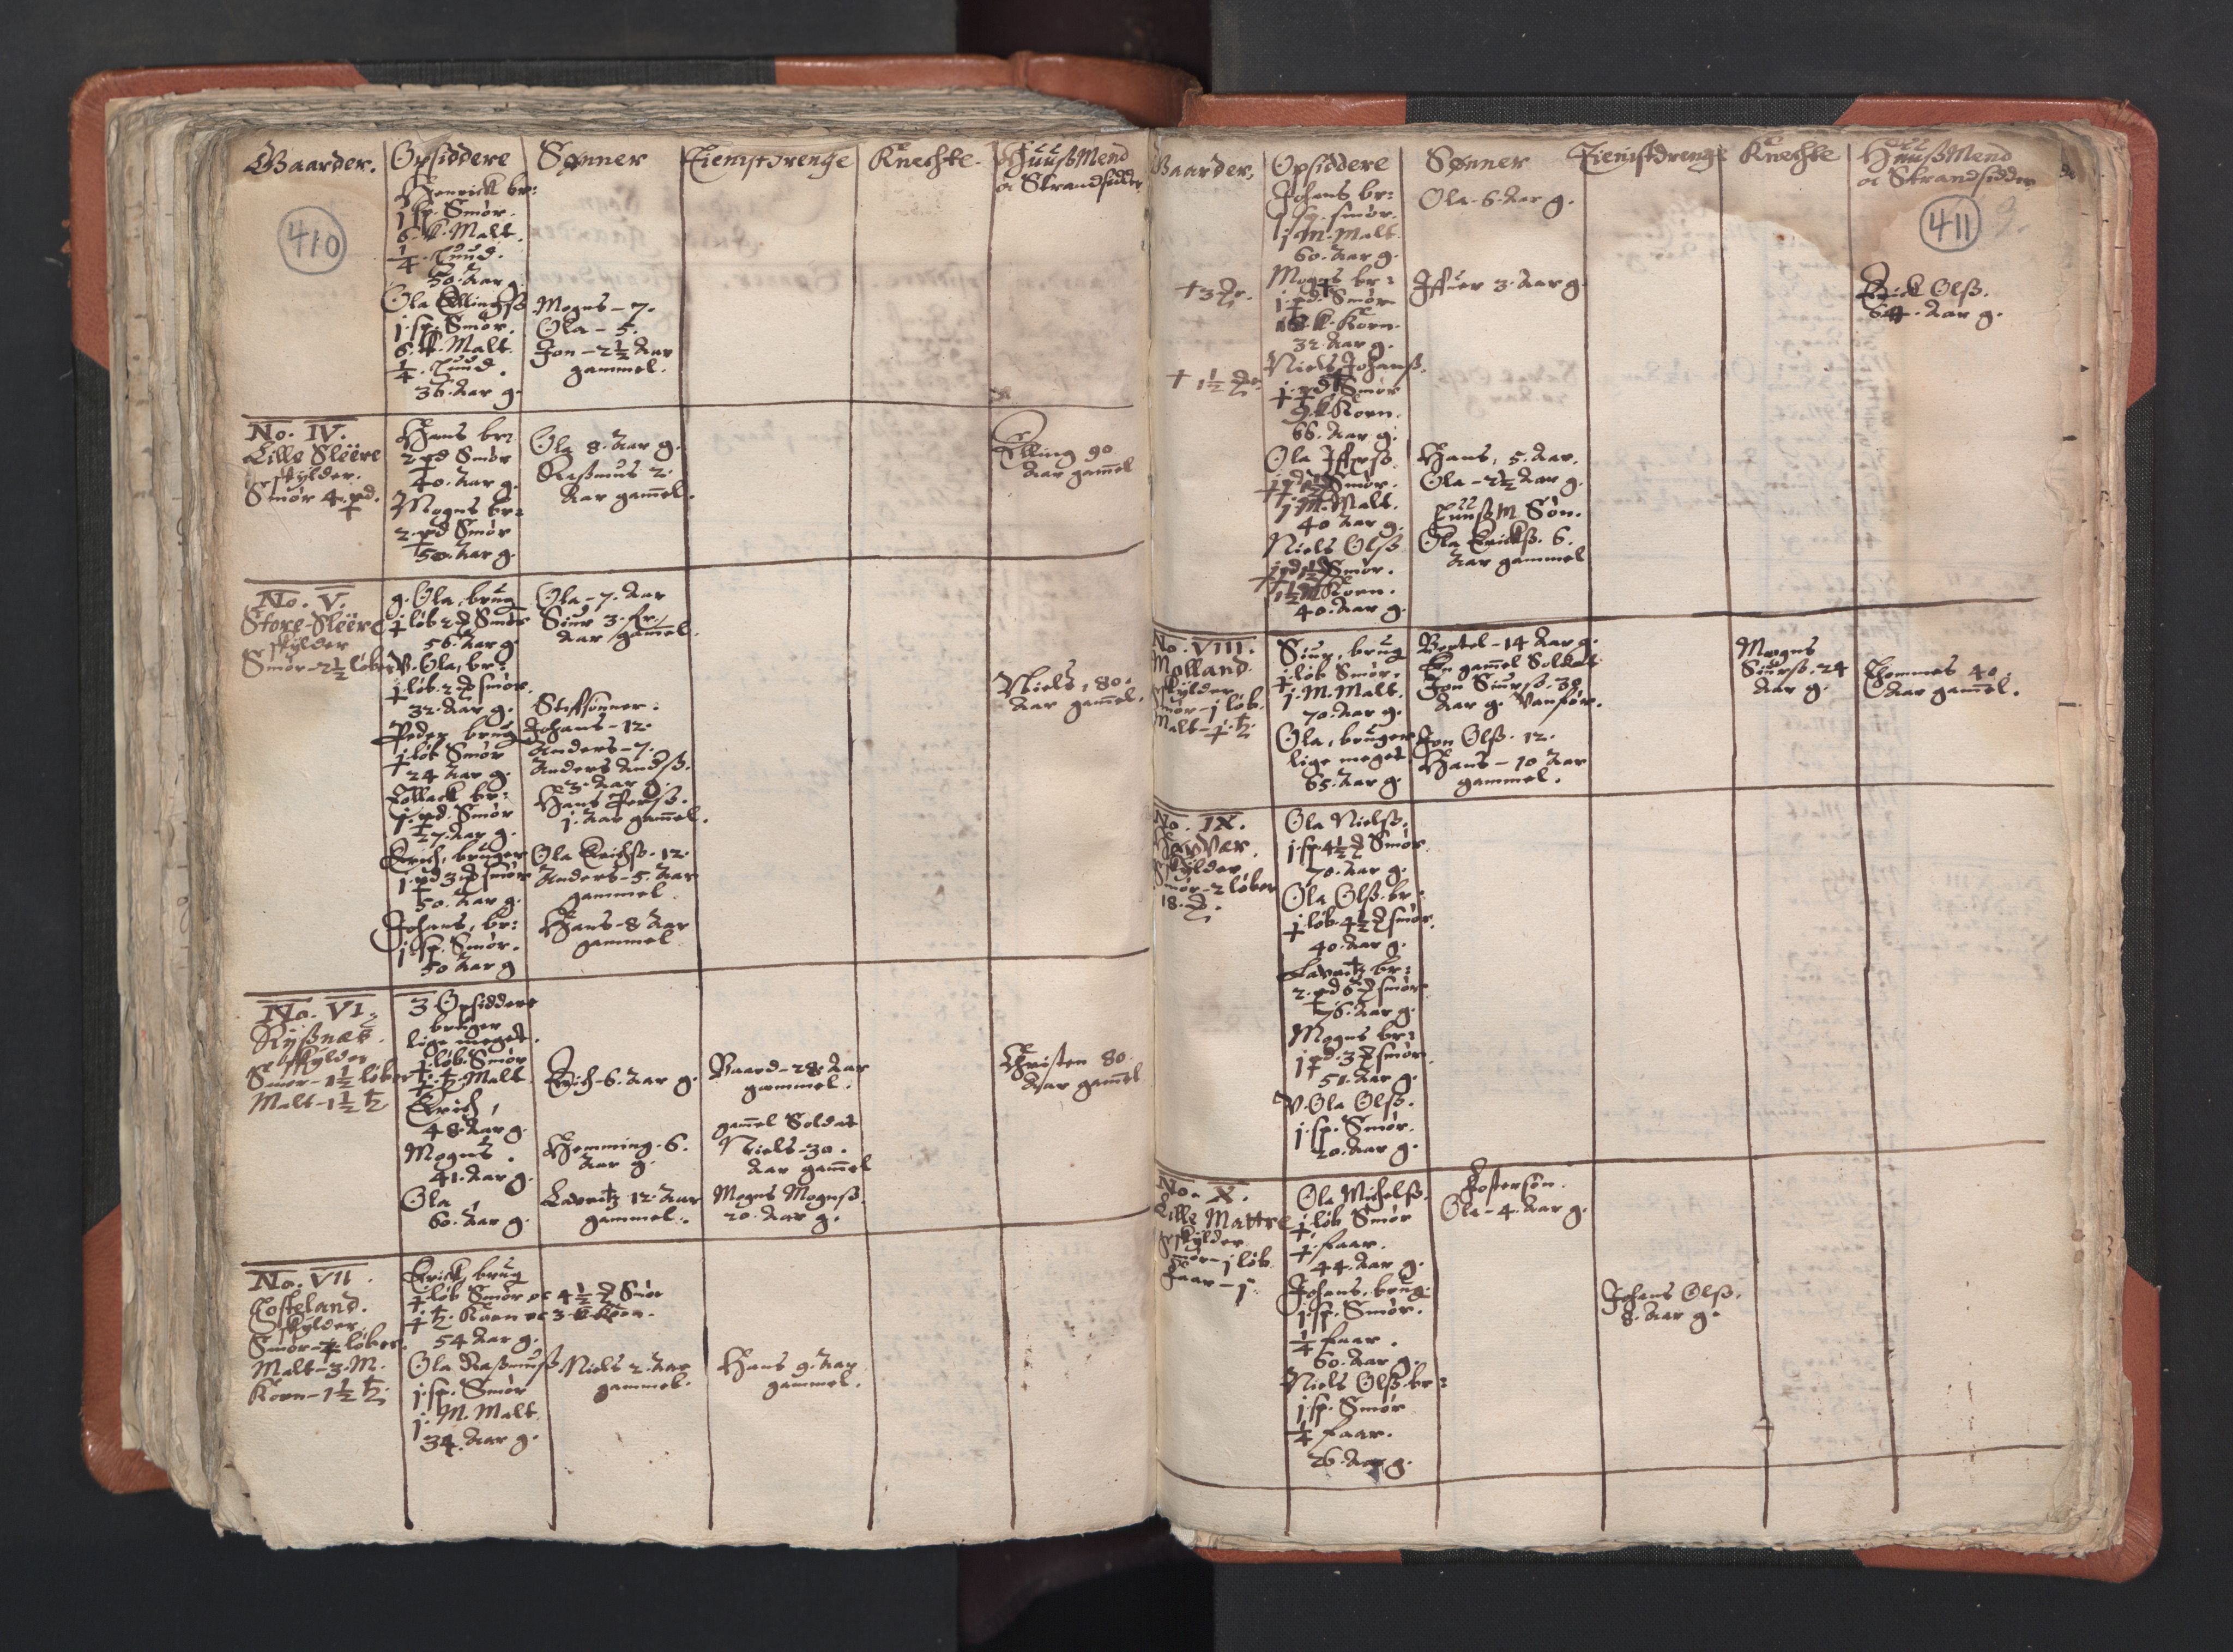 Gaarder. Opsiddere Sønner Tienistdrenge Knechte. HuußMend
oc Strandsidder
410
Henrick br:
j sp. Smør.
6. k. Malt.
1/4. Huud.
50. Aar g.
Ola Ellingß
j. sp. Smør.
6. k. Malt.
1/4. Huud.
36. Aar g.
Mogns - 7.
Ola - 5.
Jon - 2 1/2 Aar
gammel.
No. IV.
Lille Sleere
skylder.
Smør 4. pd.
Hans br:
2 pd Smør
40. Aar g.
Mogns br:
2. pd Smør
50. Aar g.
Ola 8. Aar g.
Raßmus 2.
Aar gamel.
Elling 90
Aar gamel
No. V.
Store-Sleere
skylder
Smør - 2 1/2 løber
g. Ola, brug
løb 2 Smør
56. Aar g.
V. Ola, br:
løb. 2 smør.
32. Aar g.
Peder brug
løb Smør
24 Aar g.
Tollack br:
j. pd. Smør
27. Aar g.
Erich, bruger
j. pd 3 smør
50. Aar g.
Johans, br:
j. sp. Smør.
50 Aar g
Ola - 7. Aar
Siur 3.
Aar gamel.
Stifsønner:
Johans - 12.
Anders - 7.
Anders Andß.
3. Aar g.
Hans Perß.
j. Aar gamel.
Ola Erichß. 12.
Anders - 5. Aar
gammel
Hans - 8 Aar
gammel.
Niels, 80.
Aar gamel.
No. VI.
skylder
Smør - 1 1/2 løber
Malt - 1 1/2
3 Opsiddere
bruger
lige meget.
løb. Smør
Malt
Erich,
48. Aar g.
Mogns.
41. Aar g.
Ola,
60. Aar g.
Erich - 6. Aar g.
Hemming. 6.
Aar g.
Lavritz 12. Aar
gammel.
Baard - 28. Aar
gammel.
gamel Soldat
Niels - 30.
Aar gamel
Mogns Mognß.
20. Aar g.
Christen 80.
Aar gamel
No. VII.
Tofteland.
skylder
Smør - løber.
Malt - 3. M.
Korn - 1 1/2
Erick, brug
løb Smør oc 4 1/2 Smør
Korn oc 3. k. Korn.
54 Aar g.
Ola Raßmuß
j. sp. Smør
j. M. Malt.
34. Aar g.
Niels 2. Aar
gammel.
Hans 9. Aar
gammel.
Gaarder, Opsiddere Sønner Tienistdrenge Knechte HuußMend
oc Strandsidder
411
Johans br:
j sp. smør.
j M. Malt.
60. Aar g.
Mogns br:
j. pd. Smør
k. Korn.
32. Aar g.
Niels Johanß.
j. pd Smør
9. k Korn.
66. Aar g.
Ola Iffrsø.
j pd 1 1/2 Smør.
j M. Malt.
40 Aar g.
Niels Olß
j pd 1 1/2 Smør.
1 1/2 M Korn.
40. Aar g.
Ola - 6. Aar g.
Iffuer 3. Aar g.
Hans, 5. Aar.
Ola - 2 1/2 Aar g.
HuußM. Søn.
Ola Erickß. 6.
Aar gammel
Erick Olß.
64. Aar g.
No. VIII.
Molland.
skylder
Smør - j løb.
Malt - j.
Siur, brug
løb Smør.
j. M. Malt.
70. Aar g.
Ola, bruger
lige meget
65. Aar g.
Bertel - 14 Aar g.
En gamel Soldat
Jon Siurß. 30
Aar g. Vanfør.
Jon Olß. 12.
Hans - 10 Aar
gammel.
Mogns
Siurß. 24
Aar g.
Tommes 40.
Aar gamel.
No. IX.
skylder
Smør - 2 løber
18.
Ola Nielsø.
j. sp. 4 1/2 Smør.
70. Aar g.
Ola Olß. br:
løb. 4 1/2 smør.
40. Aar g.
Lavritz br:
2. pd 6 smør.
76. Aar g.
Mogns br:
j pd. 3 smør.
51. Aar g.
V. Ola Olß.
j. sp. Smør.
20. Aar g.
No. X.
Lille Mattre
skylder
Smør - j løb
Faar - j
Ola Michelß.
løb Smør
faar.
44. Aar g.
Johans, brug.
j. sp. Smør.
1/4 faar.
60. Aar g.
Niels Olß. br:
j. sp. Smør
1/4 faar.
26. Aar g.
Fostersøn.
Ola - 4. Aar g.
Johans Olß.
8. Aar g.